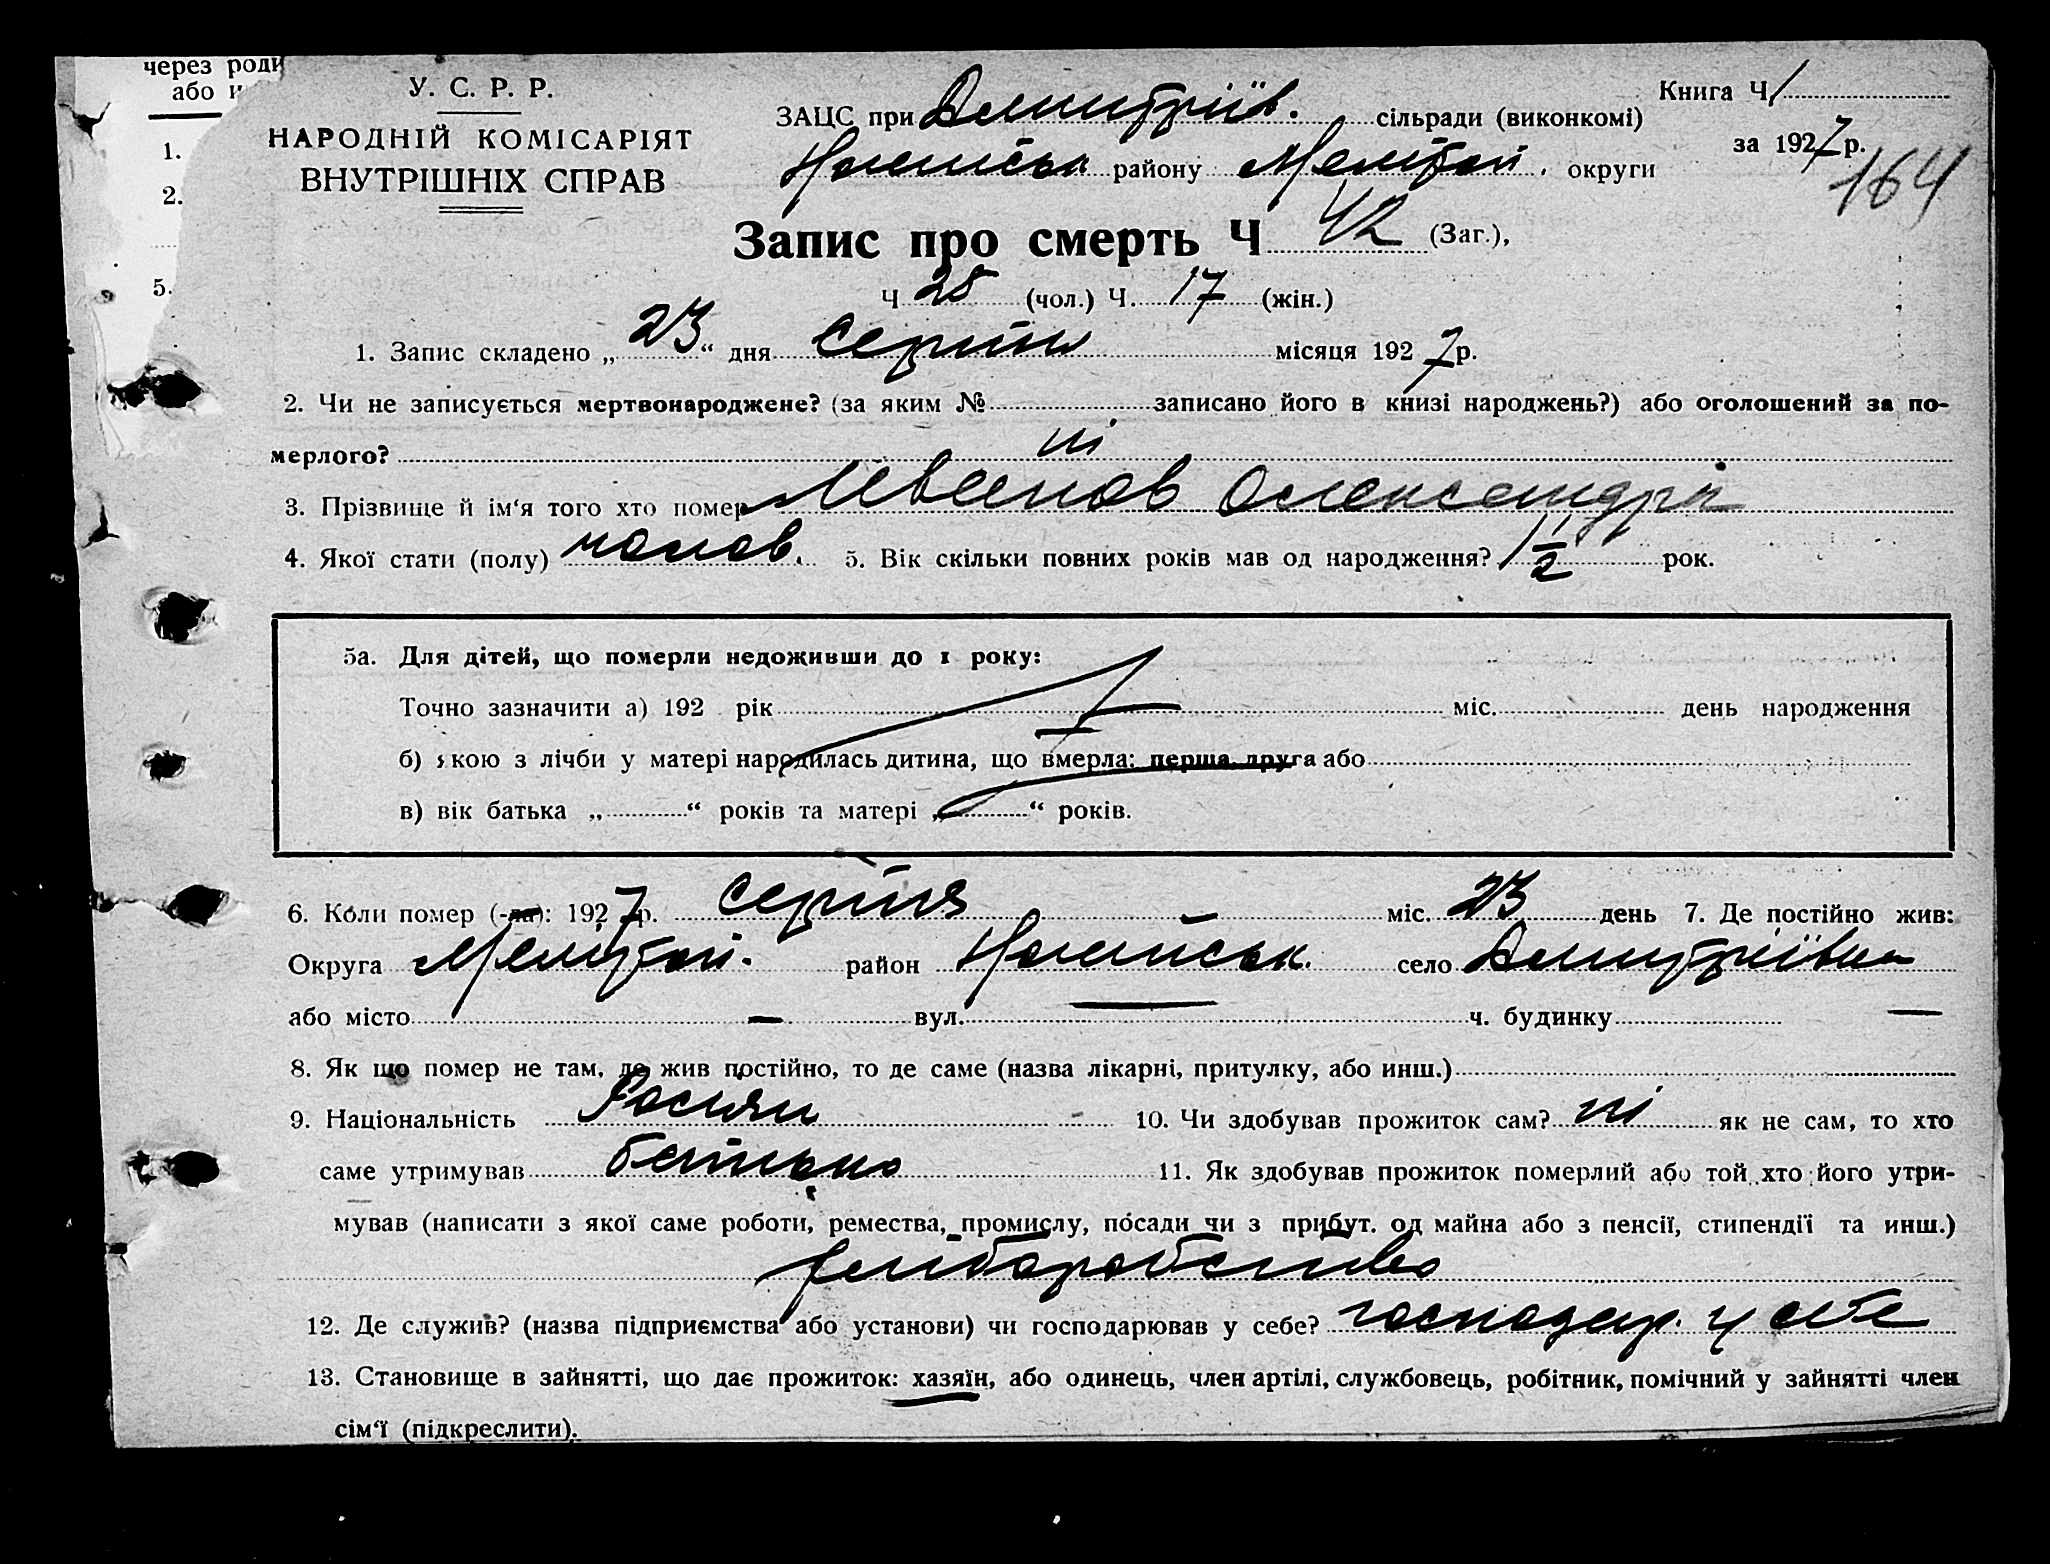 через роди
або и
1.
2.
5.
У. С. Р. Р.
НАРОДНІЙ КОМІСАРІЯТ
ВНУТРІШНІХ СПРАВ
ЗАЦС при Дмитріїв. сільради (виконкомі)
Ногайськ району Меліт. округи
Книга Ч 1
за 1927 р.
164
Запис про смерть Ч 42 (Заг.),
Ч 25 (чол.) Ч. 17 (жін.)
1. Запис складено „ 23 “ дня серпня місяця 1927 р.
2. Чи не записується мертвонароджене? (за яким № записано його в книзі народжень?) або оголошений за по-
мерлого? ні
3. Прізвище й ім‘я того хто помер Олександр
4. Якої стати (полу) чолов. 5. Вік скільки повних років мав од народження? 1 1/2 рок.
5а. Для дітей, що померли недоживши до 1 року:
Точно зазначити а) 192 рік міс. день народження
б) якою з лічби у матері народилась дитина, що вмерла: перша, друга або
в) вік батька „ “ років та матері „ “ років.
6. Коли помер (-ла): 1927 р. серпня міс. 23 день 7. Де постійно жив:
Округа Меліт. район Ногайськ. село Дмитріївка
або місто — вул. — ч. будинку —
8. Як що помер не там, де жив постійно, то де саме (назва лікарні, притулку, або инш.)
9. Національність Росіян 10. Чи здобував прожиток сам? ні як не сам, то хто
саме утримував батько 11. Як здобував прожиток померлий або той хто його утри-
мував (написати з якої саме роботи, ремества, промислу, посади чи з прибут. од майна або з пенсії, стипендії та инш.)
хліборобство
12. Де служив? (назва підприємства або установи) чи господарював у себе? господар. у себе
13. Становище в зайнятті, що дає прожиток: хазяїн, або одинець, член артілі, службовець, робітник, помічний у зайнятті член
сім‘ї (підкреслити).